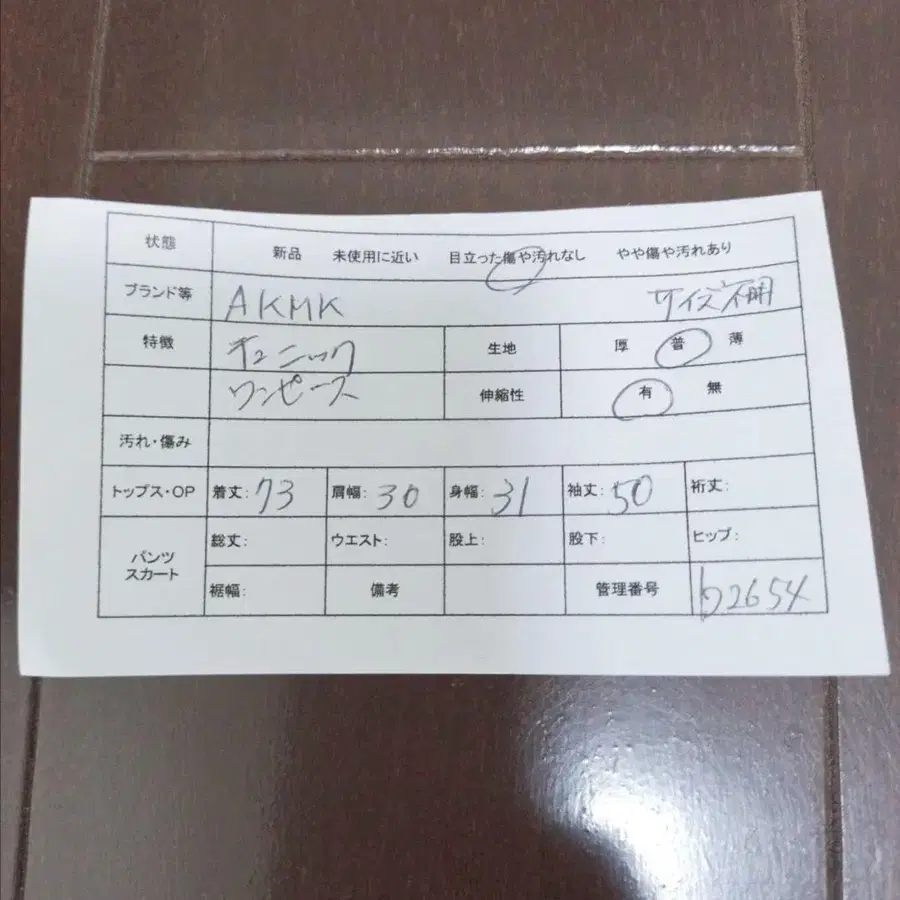 状態 新品 未使用に近い 目立った傷や汚れなし やや傷や汚れあり
ブランド等 AKMK サイズ不明
特徴 チュニック 生地 厚 普 薄
ワンピース 伸縮性 有 無
汚れ・傷み
トップス・OP 着丈: 73 肩幅: 30 身幅: 31 袖丈: 50 裄丈:
パンツ スカート 総丈: ウエスト: 股上: 股下: ヒップ:
裾幅: 備考 管理番号 わ2654